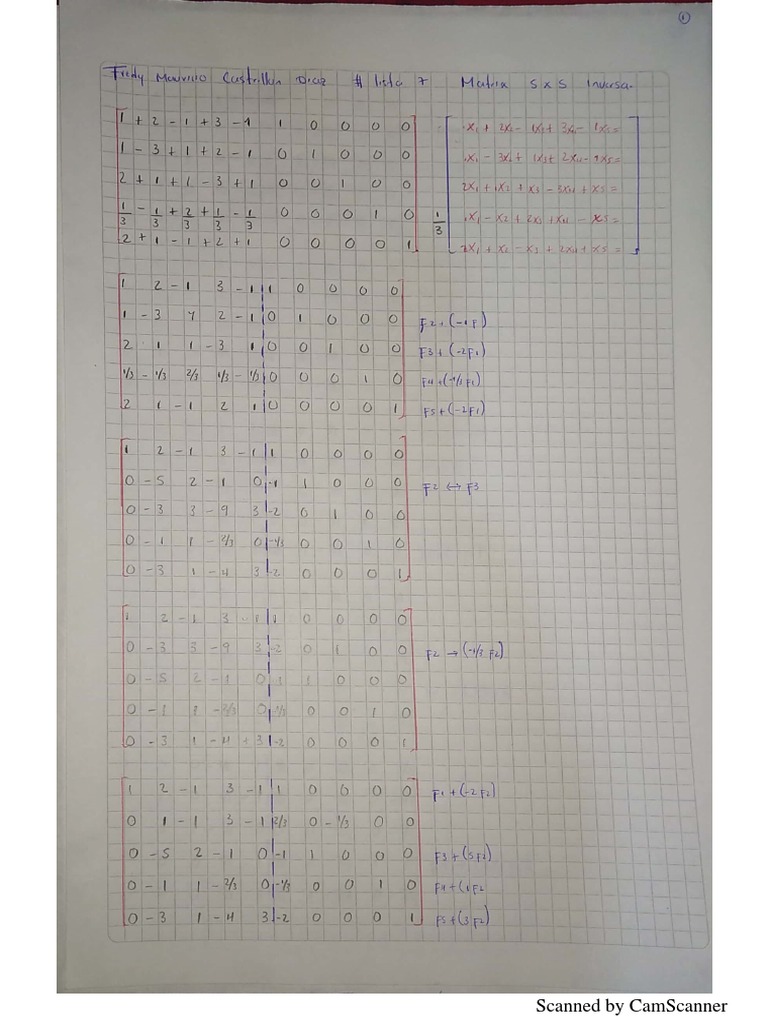 1
Fredy Mauricio Castrillon Diaz # lista 7 Matriz 5x5 Inversa.
1 + 2 - 1 + 3 - 1 1 0 0 0 0 x1 + 2x2 - 1x3 + 3x4 - 1x5 =
1 - 3 + 1 + 2 - 1 0 1 0 0 0 x1 - 3x2 + 1x3 + 2x4 - 1x5 =
2 + 1 + 1 - 3 + 1 0 0 1 0 0 2x1 + x2 + x3 - 3x4 + x5 =
1/3 - 1/3 + 2/3 + 1/3 - 1/3 0 0 0 1 0 1/3 x1 - x2 + 2x3 + x4 - x5 =
2 + 1 - 1 + 2 + 1 0 0 0 0 1 2x1 + x2 - x3 + 2x4 + x5 =
1 2 - 1 3 - 1 1 0 0 0 0
1 - 3 1 2 - 1 0 1 0 0 0 F2 + (-1F)
2 1 1 - 3 1 0 0 1 0 0 F3 + (-2F1)
1/3 - 1/3 2/3 1/3 - 1/3 0 0 0 1 0
2 1 - 1 2 1 0 0 0 0 1 F5 + (-2F1)
1 2 - 1 3 - 1 1 0 0 0 0
0 - 5 2 - 1 0 -1 1 0 0 0 F2 ↔ F3
0 - 3 3 - 9 3 -2 0 1 0 0
0 - 1 1 - 2/3 0 -1/3 0 0 1 0
0 - 3 1 - 4 3 -2 0 0 0 1
1 2 - 1 3 - 1 1 0 0 0 0
0 - 3 3 - 9 3 -2 0 1 0 0 F2 → (-1/3 F2)
0 - 5 2 - 1 0 -1 1 0 0 0
0 - 1 1 - 2/3 0 -1/3 0 0 1 0
0 - 3 1 - 4 + 3 -2 0 0 0 1
1 2 - 1 3 - 1 1 0 0 0 0 F1 + (-2F2)
0 1 - 1 3 - 1 2/3 0 - 1/3 0 0
0 - 5 2 - 1 0 -1 1 0 0 0 F3 + (5F2)
0 - 1 1 - 2/3 0 -1/3 0 0 1 0 F4 + (1F2
0 - 3 1 - 4 3 -2 0 0 0 1 F5 + (3F2)
Scanned by CamScanner